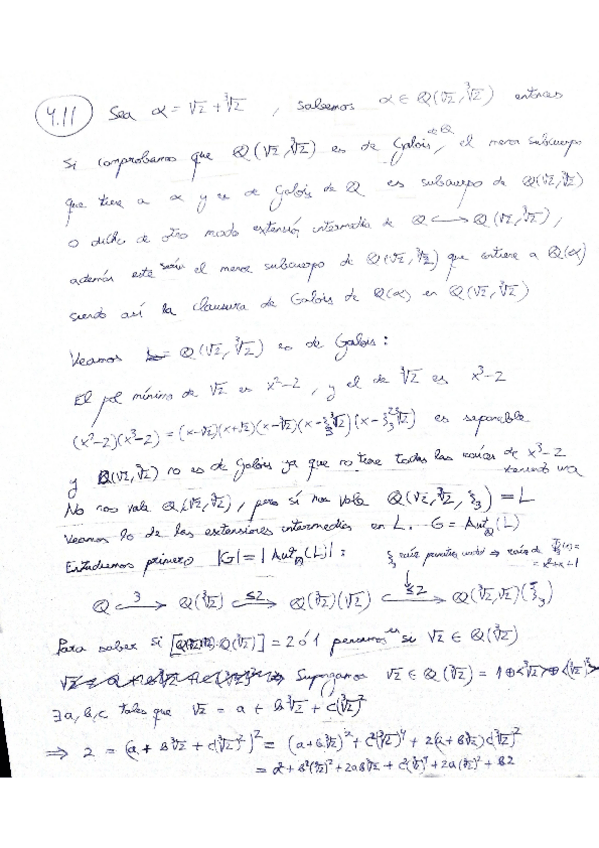 4.11 Sea α = √2 + ∛2 , sabemos α ∈ Q(√2, ∛2) entonces
si comprobamos que Q(√2, ∛2) es de Galois, el menor subcuerpo
que tiene a α y es de Galois de Q es subcuerpo de Q(√2, ∛2)
o dicho de otro modo extensión intermedia de Q ↪ Q(√2, ∛2),
además este sería el menor subcuerpo de Q(√2, ∛2) que contiene a Q(α)
siendo así la clausura de Galois de Q(α) en Q(√2, ∛2)
Veamos Q(√2, ∛2) es de Galois:
El pol mínimo de √2 es x²-2 , y el de ∛2 es x³-2
(x²-2)(x³-2) = (x-√2)(x+√2)(x-∛2)(x-ξ₃∛2)(x-ξ₃²∛2) es separable
y Q(√2, ∛2) no es de Galois ya que no tiene todas las raíces de x³-2
No nos vale Q(√2, ∛2), pero sí nos vale Q(√2, ∛2, ξ₃) = L
Veamos lo de las extensiones intermedias en L. G = Aut_Q(L)
Estudiemos primero |G| = |Aut_Q(L)| :
ξ₃ raíz primitiva ⇒ raíz de = x²+x+1
Q →3 Q(∛2) →≤2 Q(∛2)(√2) →≤2 Q(∛2, √2)(ξ₃)
Para saber si [ : Q(∛2)] = 2 ó 1 si √2 ∈ Q(∛2)
Supongamos √2 ∈ Q(∛2) = 1⊕<∛2>⊕<(∛2)²>
∃ a, b, c tales que √2 = a + b∛2 + c(∛2)²
⇒ 2 = (a + b∛2 + c(∛2)²)² = (a+b∛2)² + c²(∛2)⁴ + 2(a+b∛2)c(∛2)²
= a² + b²(∛2)² + 2ab∛2 + c²(∛2)⁴ + 2a(∛2)² +